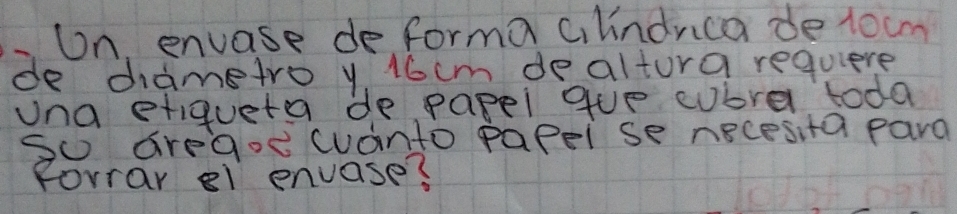 - Un envase de forma cilíndrica de 10cm
de diámetro y 16cm de altura requiere
una etiqueta de papel que cubra toda
su area.¿ cuánto papel se necesita para
Forrar el envase?